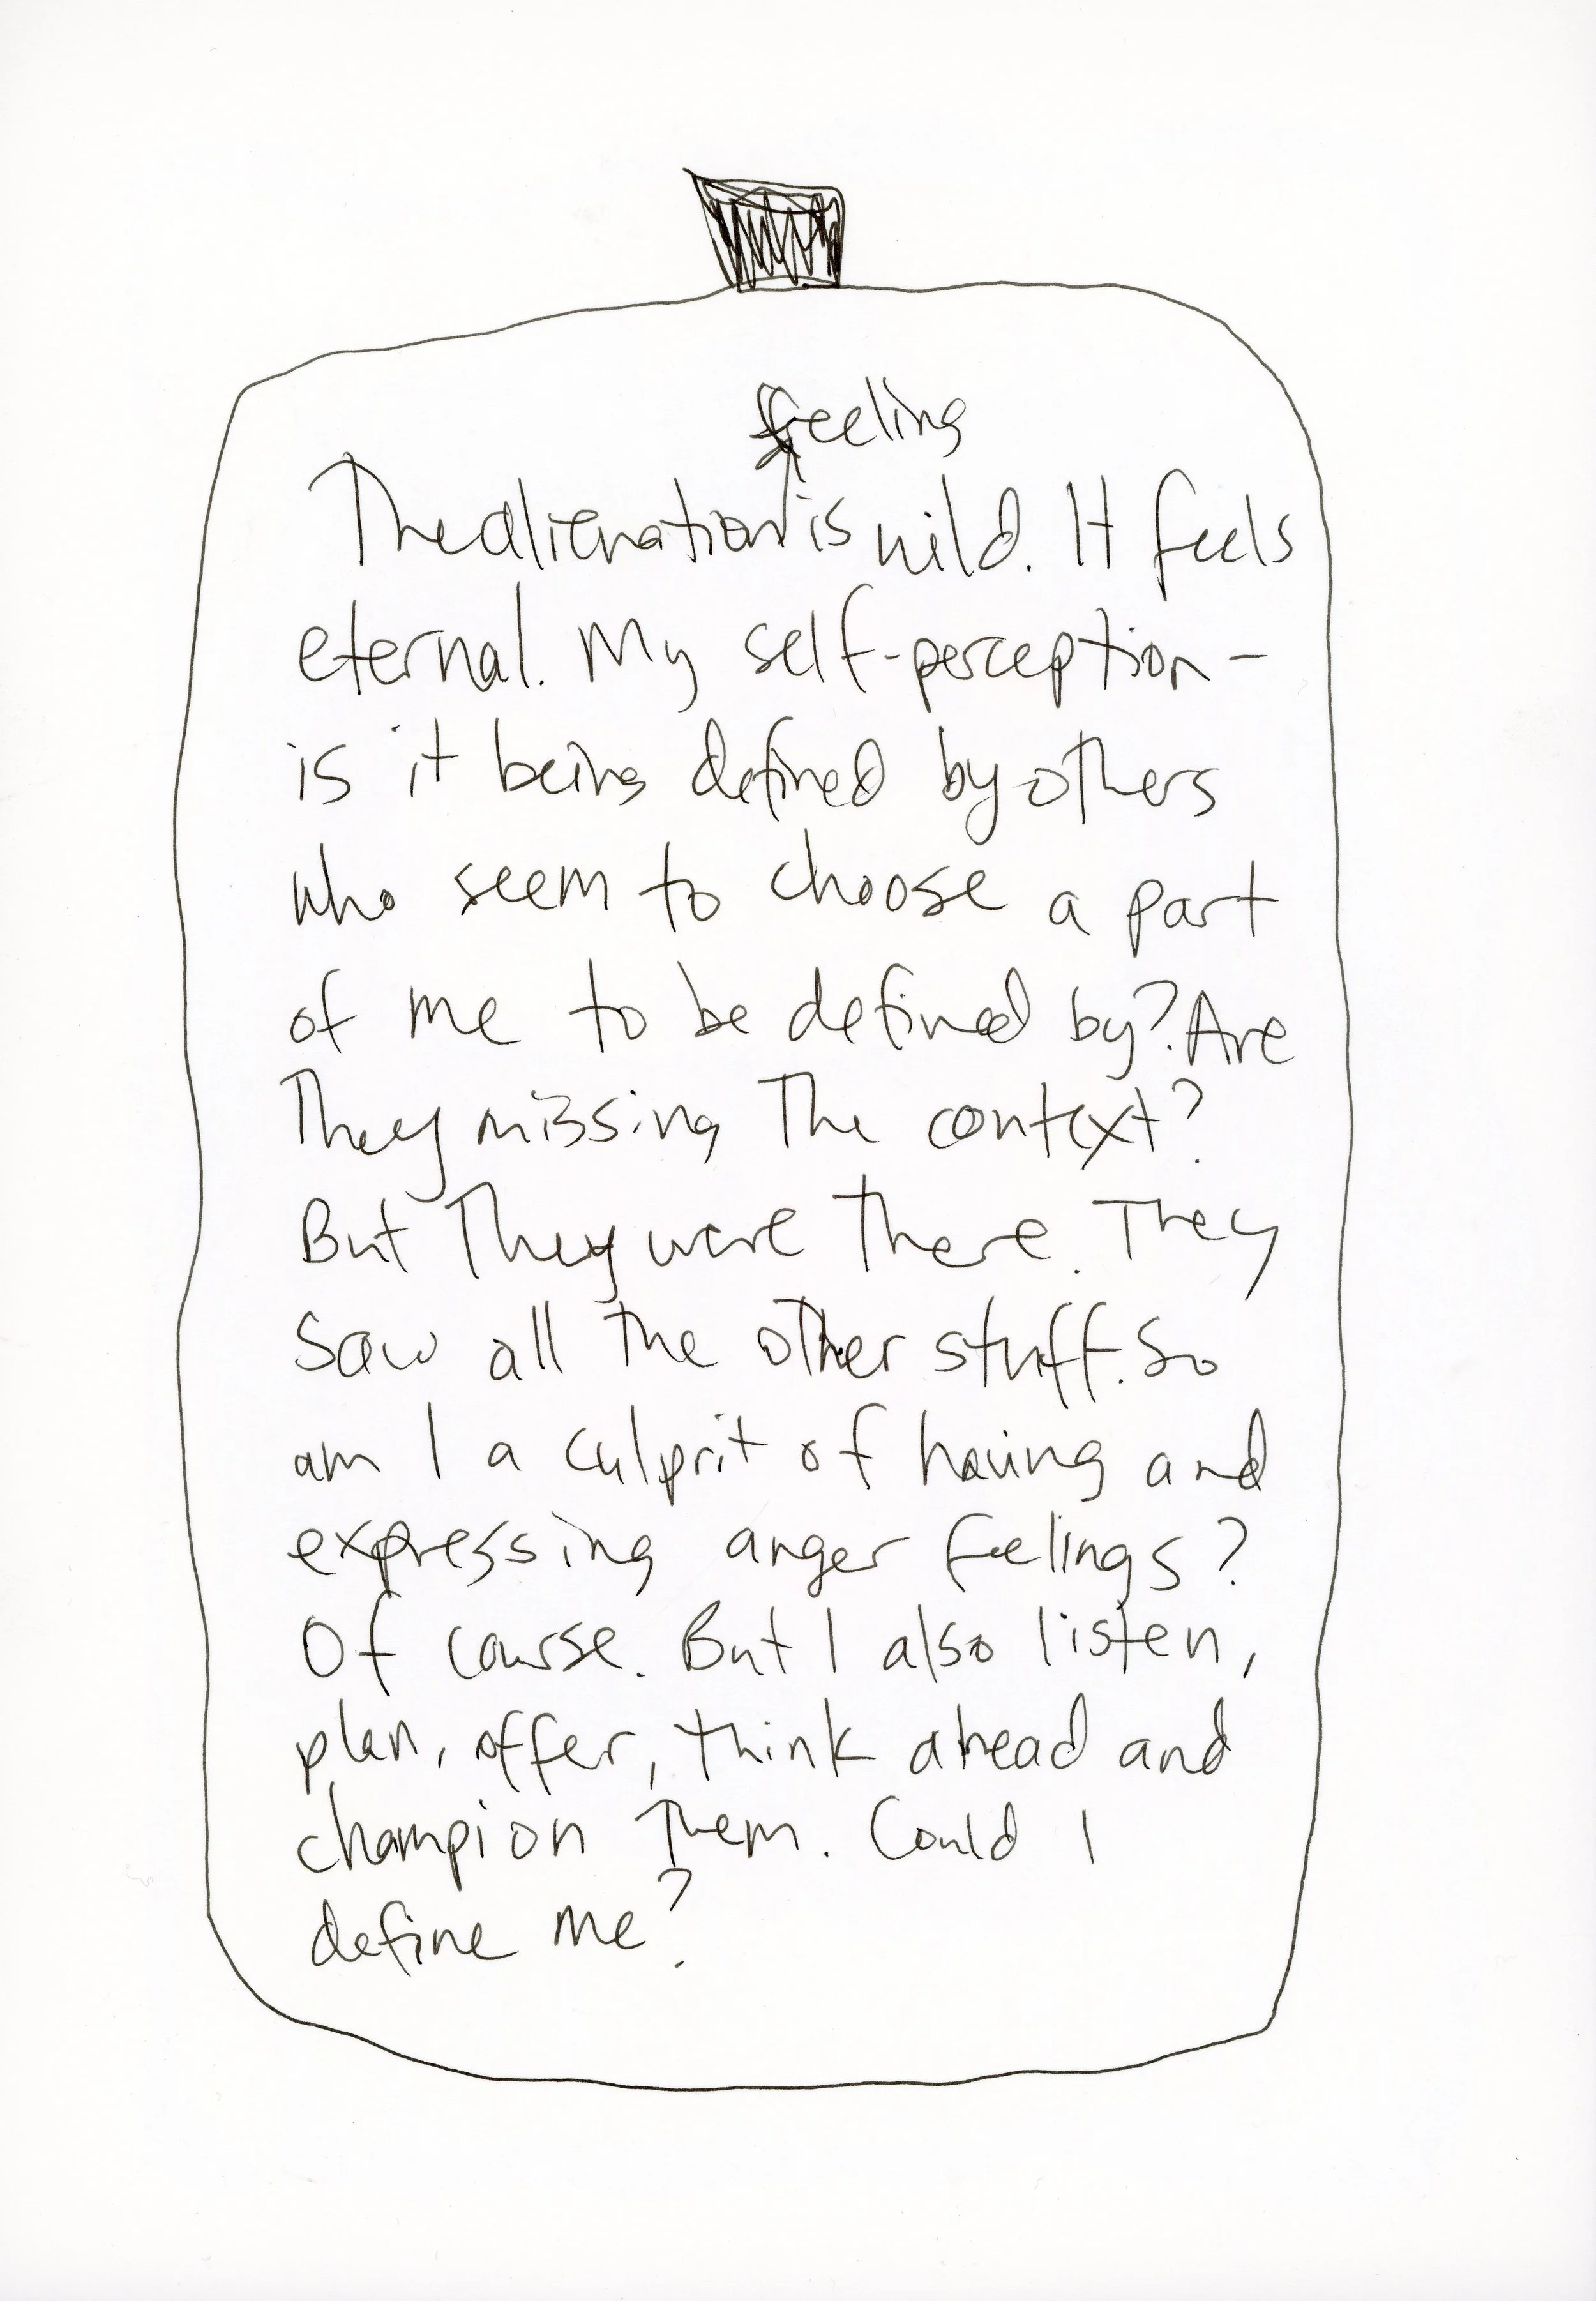 feeling
The alienation is wild. It feels
eternal. My self-perception -
is it being defined by others
who seem to choose a part
of me to be defined by? Are
They missing The context?
But They were There. They
saw all the other stuff. So
am I a culprit of having and
expressing anger feelings?
Of course. But I also listen,
plan, offer, think ahead and
champion Them. Could I
define me?